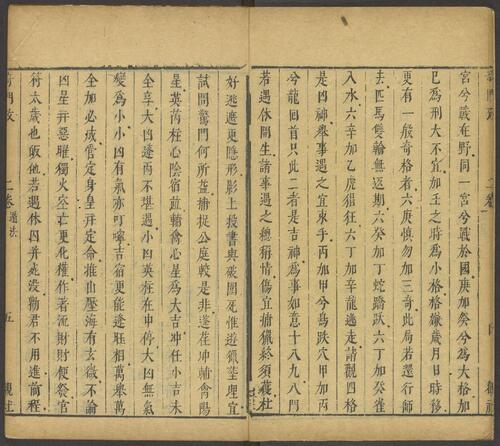 宮兮戰在野同一宮兮戰於國庚加癸兮為大格加
已為刑大不宜加壬之時為小格格嫌歲月日時移
更有一般奇格者六庚慎勿加三奇此局若還行師
去匹馬隻輪無返期六癸加丁蛇蹻跃六丁加癸雀
入水六辛加乙虎猖狂六丁加辛龍逃走請觀四格
是凶神舉事遇之宜束手丙加甲兮鳥跌穴甲加丙
兮龍回首只此二者是吉神為事如意十八九八門
若遇休開生諸事遇之總稱情傷宜捕獵終須獲杜
好逃遮更隱形影上投書與破圍死惟遊獵塟埋宜
試問驚門何所宜捕捉公庭較是非蓬任冲輔禽陽
星英芮柱心陰宿輔禽心星為大吉冲任小吉未
全亨大凶蓬芮不堪遇小凶英柱在中停大凶無氣
變為小小凶有氣亦叮嚀吉宿更能逢旺相萬舉萬
全加必成管定身皇并定命推山壓海有玄微不論
凶星并惡曜獨火空亡更化權作著泥財財便祭官
符太歲也皈他若遇休囚并死沒勸君不用進前程
奇門
二卷
遁法
五